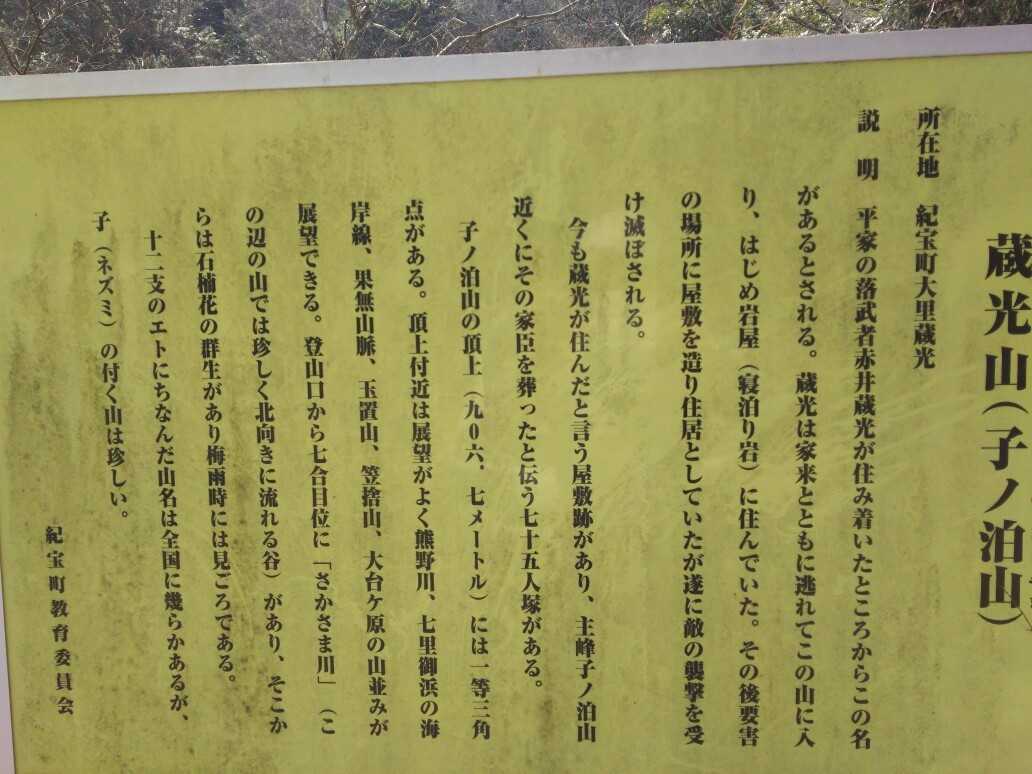 蔵光山(子ノ泊山)
所在地　紀宝町大里蔵光
説　明　平家の落武者赤井蔵光が住み着いたところからこの名
があるとされる。蔵光は家来とともに逃れてこの山に入
り、はじめ岩屋（寝泊り岩）に住んでいた。その後要害
の場所に屋敷を造り住居としていたが遂に敵の襲撃を受
け滅ぼされる。
今も蔵光が住んだと言う屋敷跡があり、主峰子ノ泊山
近くにその家臣を葬ったと伝う七十五人塚がある。
子ノ泊山の頂上（九０六、七メートル）には一等三角
点がある。頂上付近は展望がよく熊野川、七里御浜の海
岸線、果無山脈、玉置山、笠捨山、大台ケ原の山並みが
展望できる。登山口から七合目位に「さかさま川」（こ
の辺の山では珍しく北向きに流れる谷）があり、そこか
らは石楠花の群生があり梅雨時には見ごろである。
十二支のエトにちなんだ山名は全国に幾らかあるが、
子（ネズミ）の付く山は珍しい。
紀宝町教育委員会